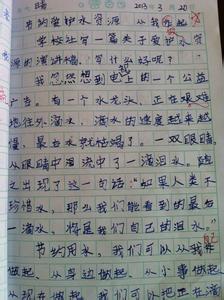 晴 2013年3月20
节约爱护水资源 从我作起
学校让写一篇关于爱护水资
源的演讲稿,写什么好呢?
我忽然想到电视上的一个公益
广告。有一个水龙头,正在艰难
地往外滴水,滴水的速度越来越
慢,最后水就枯竭了。一双眼睛,
从眼睛中间流中了一滴泪水。随
之出现了这一句话:“如果人类不
珍惜水,那么我们能看到的最后
一滴水,将是我们自己的泪水”。
节约用水,我们可以从我开
做起、从身边做起、从小事做起
从现在做起。我们可以把